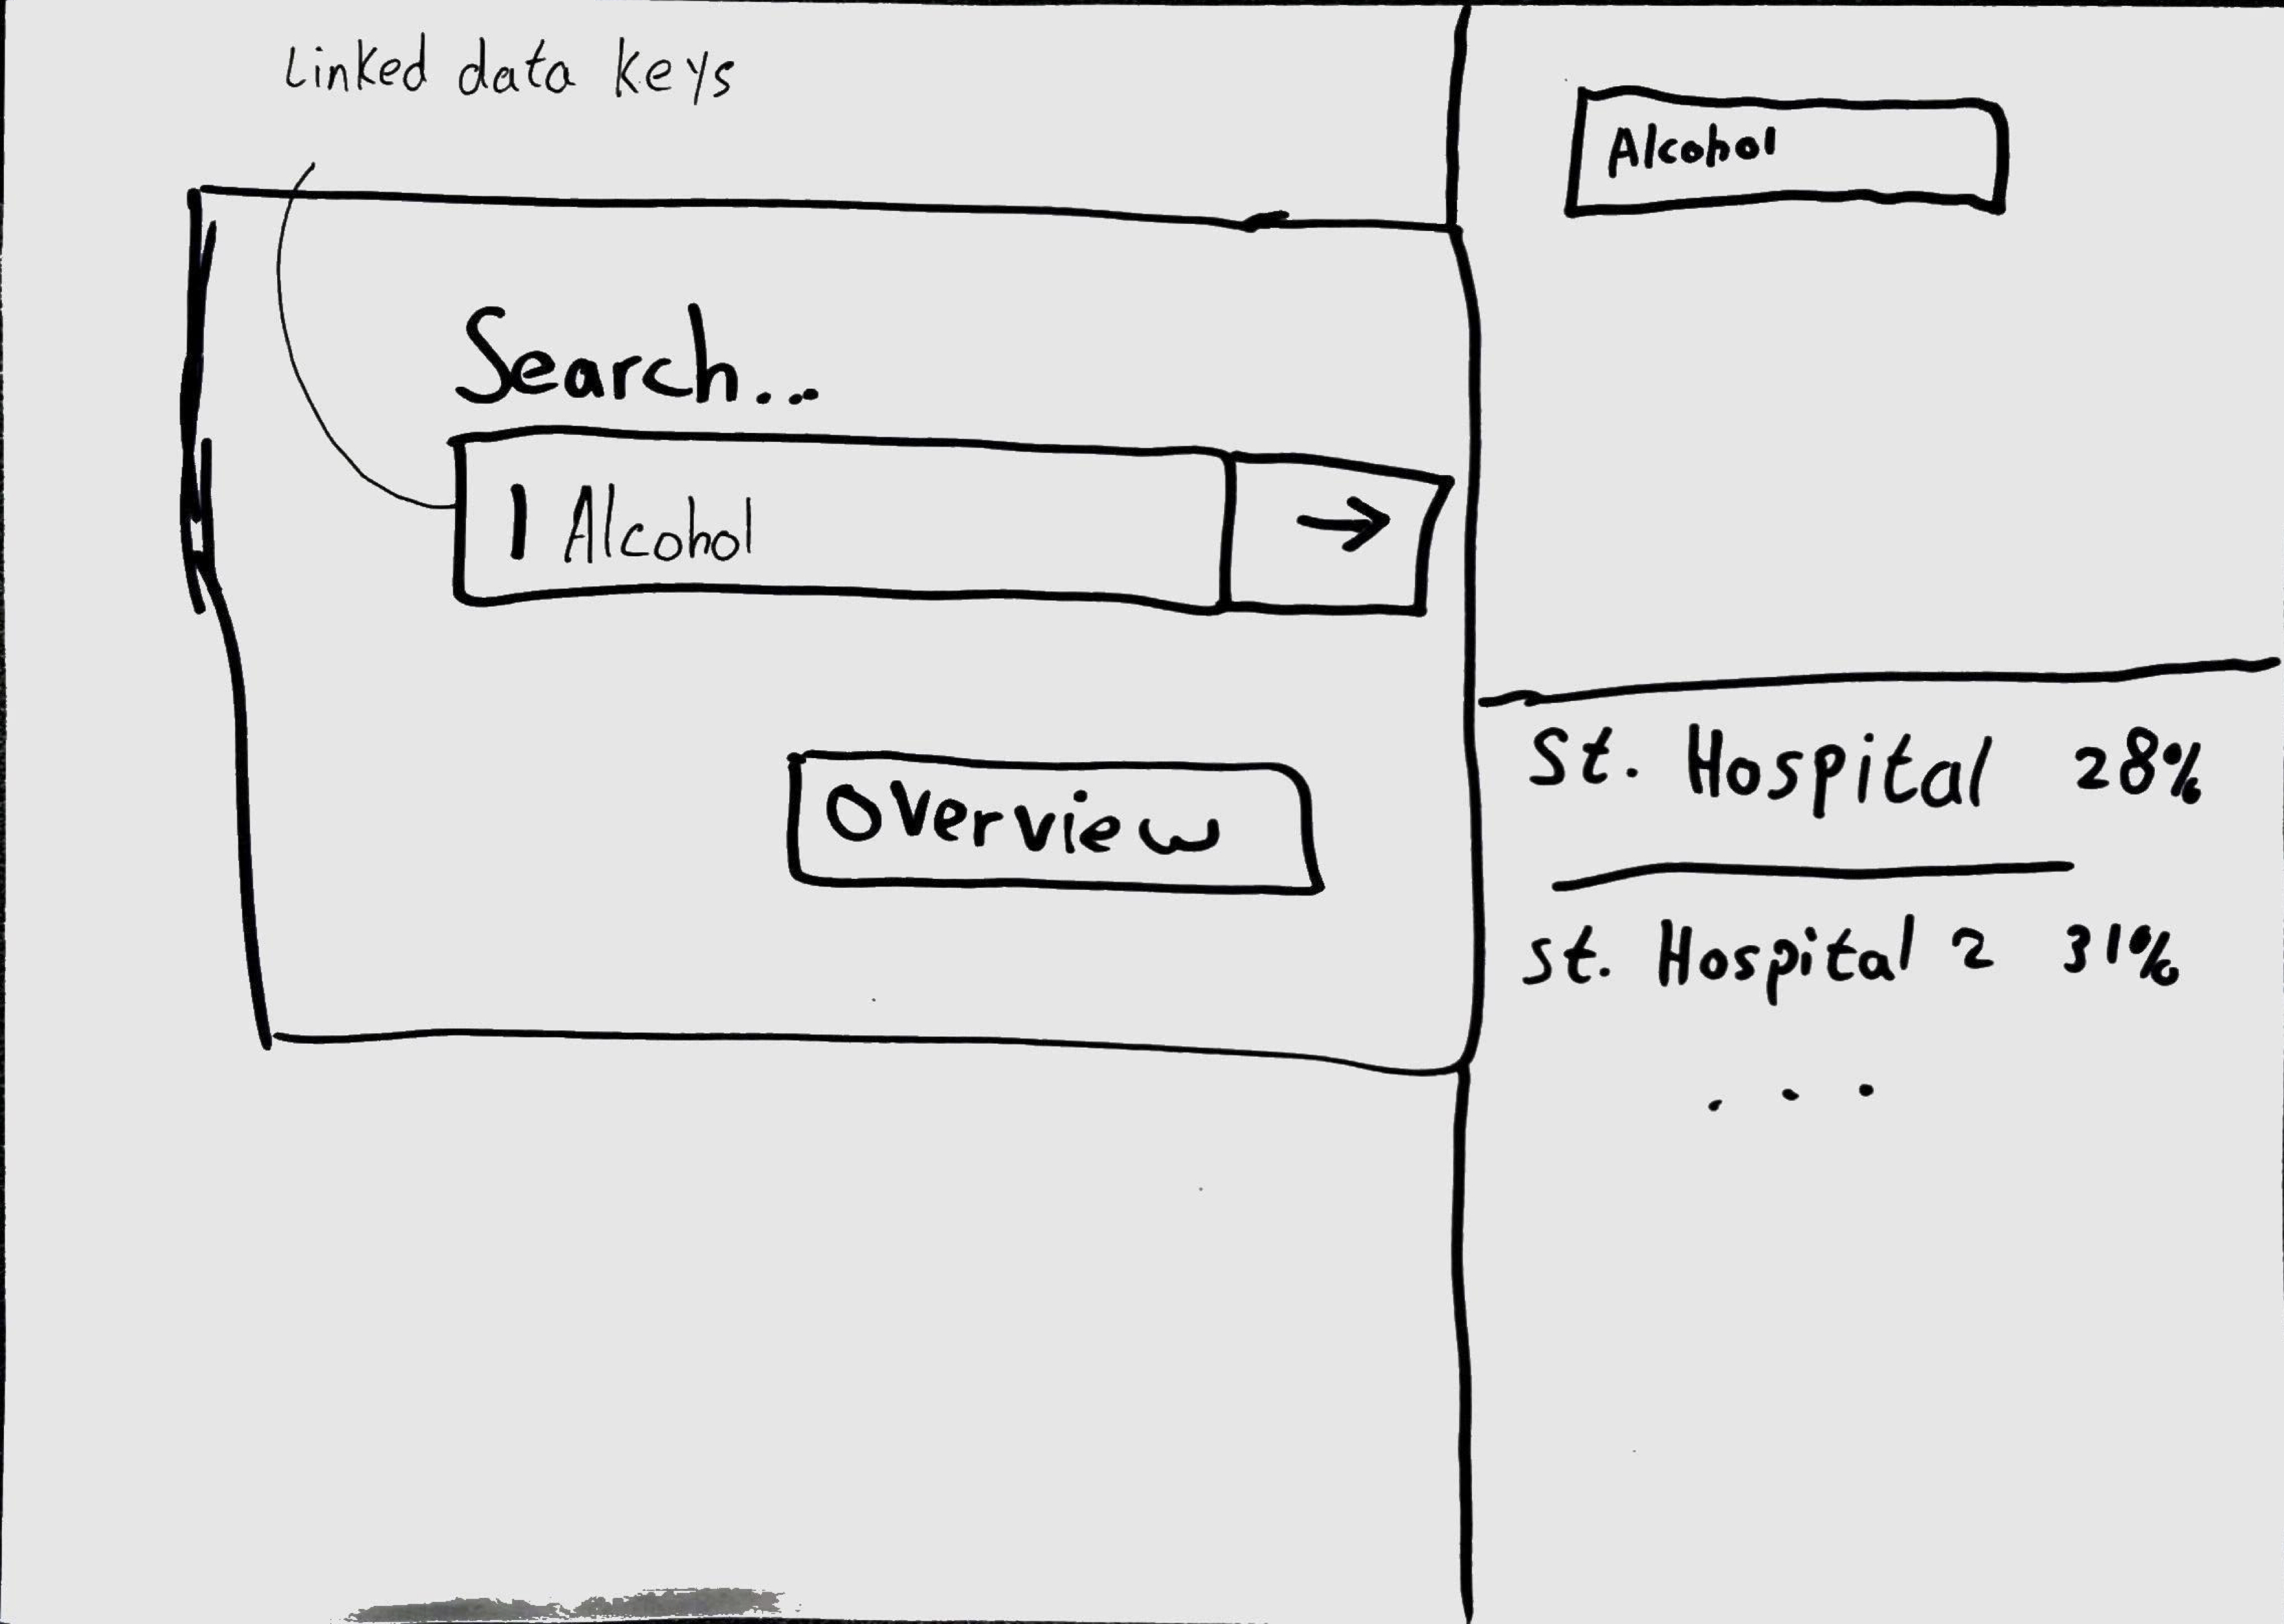 Linked data keys
Search...
Alcohol
→
Overview
Alcohol
St. Hospital 28%
St. Hospital 2 31%
...